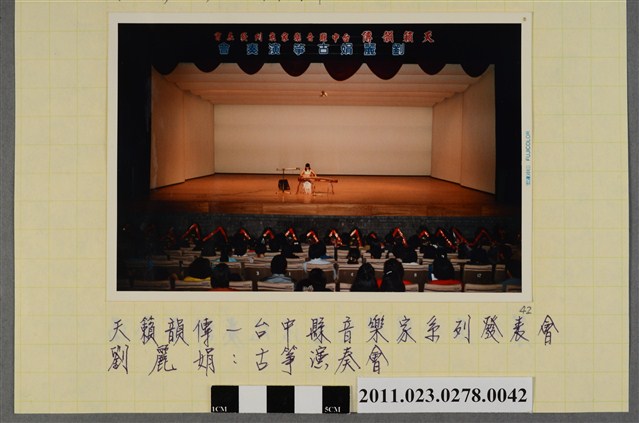 天籟韻傳 台中縣音樂家系列發表會
劉麗娟古箏演奏會
FUJICOLOR
42
天籟韻傳—台中縣音樂家系列發表會
劉麗娟：古箏演奏會
1CM 5CM
2011.023.0278.0042